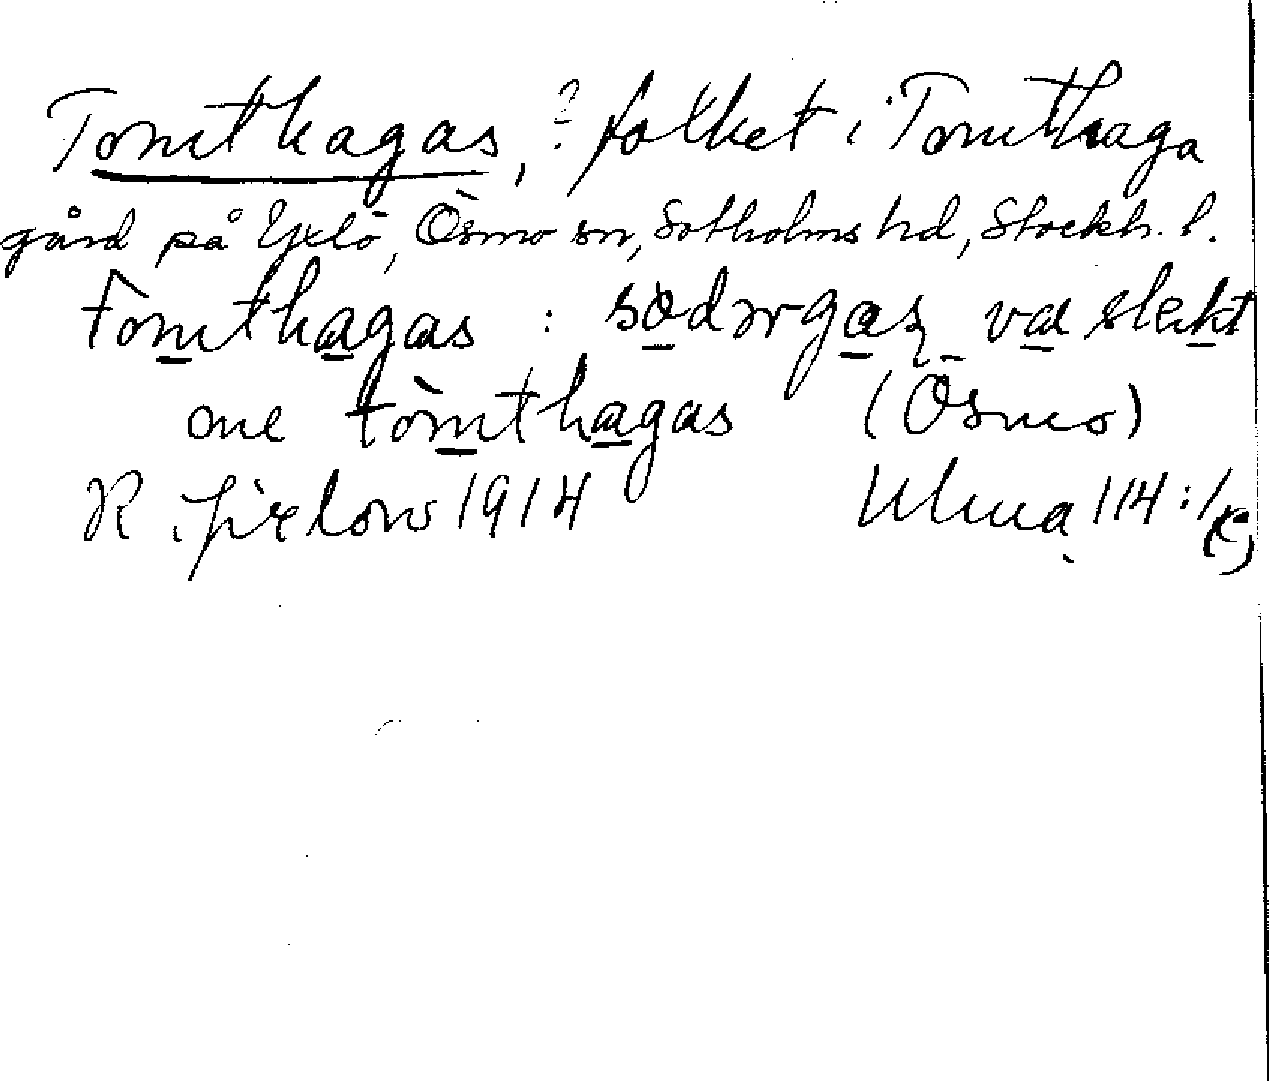 Tomthagas, ? folket i Tomthaga
gård på Yxlö, Ösmo sn, Sotholms hd, Stockh. l.
tomthagas : södərgas va slekt
me tòmthagas (Ösmo)
R. 1914 Ulma 114:1